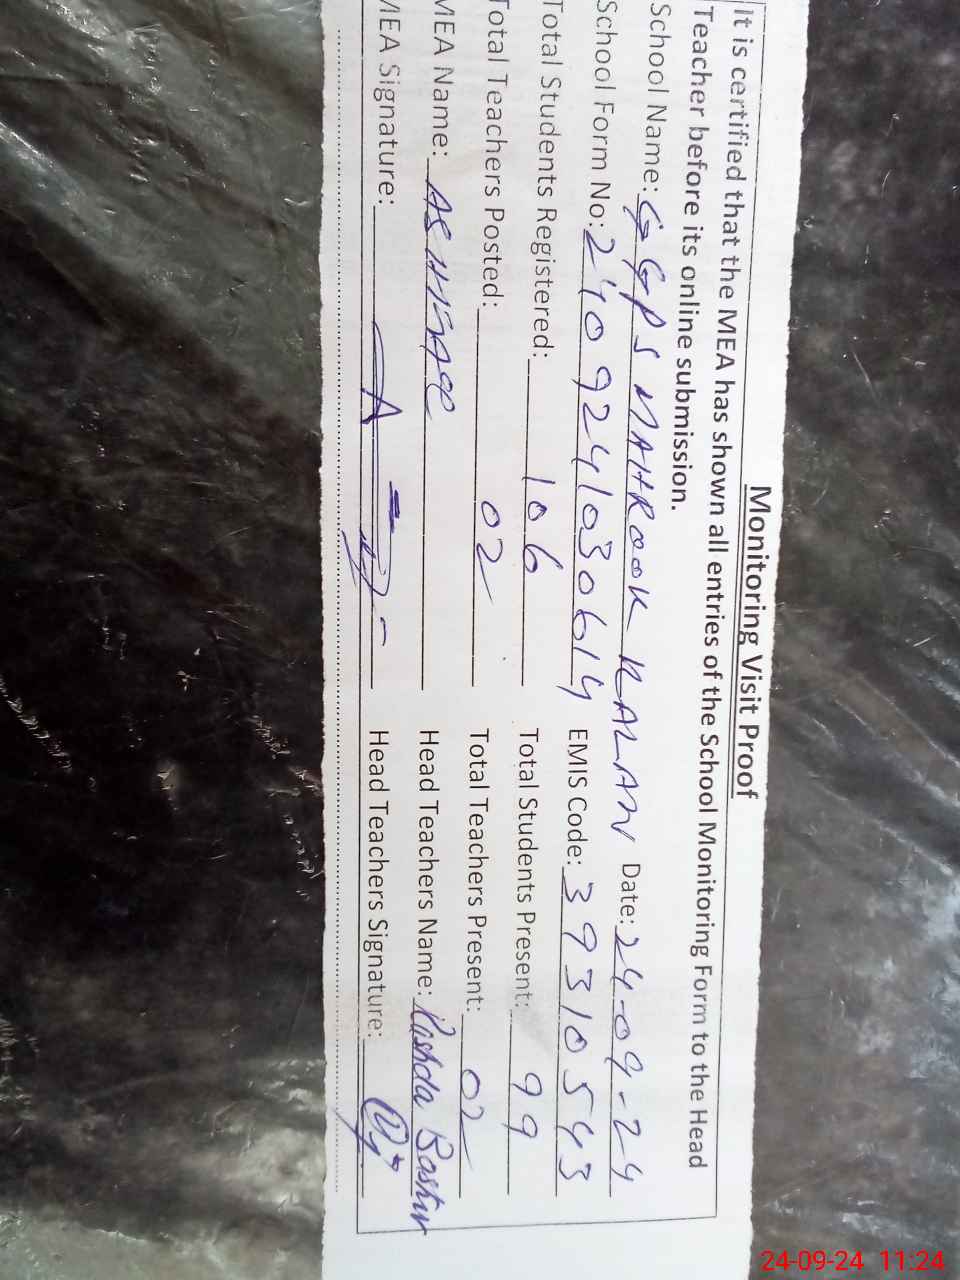 Monitoring Visit Proof
It is certified that the MEA has shown all entries of the School Monitoring Form to the Head
Teacher before its online submission.
School Name: GGPS MAHROOK KALAN Date: 24-09-24
School Form No: 2409241030614 EMIS Code: 39310543
Total Students Registered: 106 Total Students Present: 99
Total Teachers Posted: 02 Total Teachers Present: 02
MEA Name: Head Teachers Name: Rashda Bashir
MEA Signature: Head Teachers Signature:
24-09-24 11:24